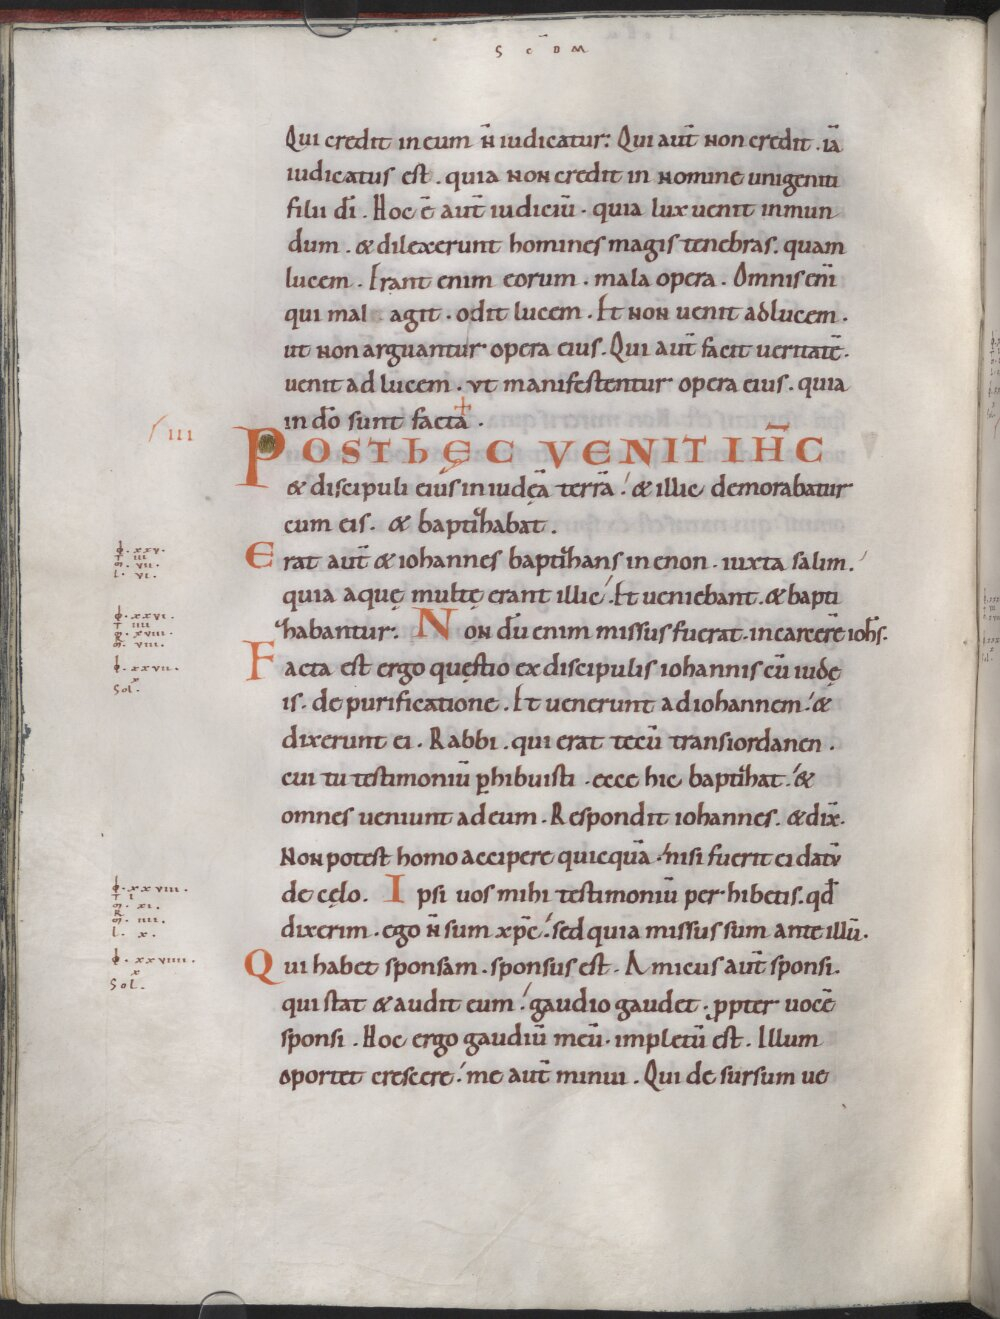 S C̄ D M
Qui credit in eum n̄ iudicatur: Qui aut̄ non credit . iā
iudicatus est . quia non credit in nomine unigeniti
filii dī . Hoc ē aut̄ iudiciū . quia lux uenit in mun
dum . & dilexerunt homines magis tenebras . quam
lucem . Erant enim eorum . mala opera . Omnis enī
qui mal agit . odit lucem . Et non uenit ad lucem .
ut non arguantur opera eius . Qui aut̄ facit ueritatē .
uenit ad lucem . vt manifestentur opera eius . quia
in dō sunt facta .
III
POST HEC VENIT IHC̄
& discipuli eius in iudęā terrā : & illic demorabatur
cum eis . & baptizabat .
φ . xxv .
T III
M . VII .
L . VI .
Erat aut̄ & iohannes baptizans in enon . iuxta salim .
quia aquę multę erant illic . Et ueniebant . & bapti
φ . xxvi .
T IIII
R . xviii .
M . VIII .
zabantur . Non dū enim missus fuerat . in carcerē ioh̄s .
φ . xxvii .
x
Sol .
Facta est ergo questio ex discipulis iohannis cū iudę
is . de purificatione . Et uenerunt ad iohannem : &
dixerunt ei . Rabbi . qui erat tecū trans iordanen .
cui tu testimoniū ꝑhibuisti . ecce hic baptizat : &
omnes ueniunt ad eum . Respondit iohannes . & dix̄ .
Non potest homo accipere quicquā . nisi fuerit ei datū
φ . xxviii .
T I
M . XI .
R
M . IIII .
L . X .
de cęlo . Ipsi uos mihi testimoniū per hibetis . qd̄
dixerim . ego n̄ sum xp̄c : sed quia missus sum ante illū .
φ . xxviiii .
x
Sol .
Qui habet sponsam . sponsus est . Amicus aut̄ sponsi .
qui stat & audit eum : gaudio gaudet . ꝓpter uocē
sponsi . Hoc ergo gaudiū meū . impletū est . Illum
oportet crescere : me aut̄ minui . Qui de sursum ue